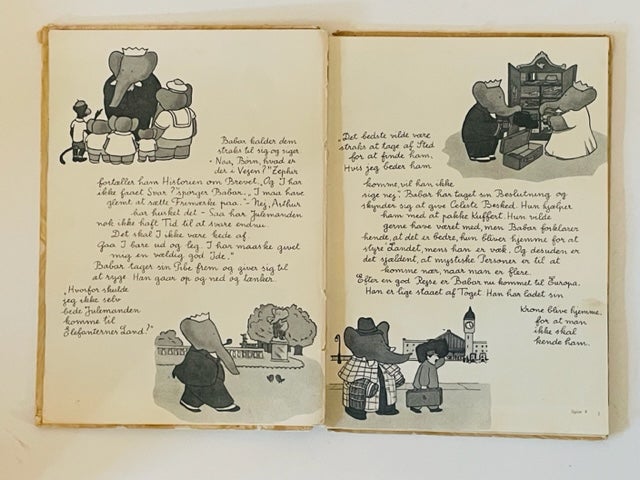 Babar kalder dem
straks til sig og siger.
- Naa, Børn, hvad er
der i Vejen?" Zephir
fortæller ham Historien om Brevet. „Og I har
ikke faaet Svar?" spørger Babar. „I maa have
glemt at sætte Frimærke paa." - „Nej, Arthur
har husket det - Saa har Julemanden
nok ikke haft Tid til at svare endnu.
Det skal I ikke være kede af.
Gaa I bare ud og leg. I har maaske givet
mig en vældig god Ide."
Babar tager sin Pibe frem og giver sig til
at ryge Han gaar op og ned og tænker.
„Hvorfor skulde
jeg ikke selv
bede Julemanden
komme til
Elefanternes Land?"
„Det bedste vilde være
straks at tage af Sted
for at finde ham.
Hvis jeg beder ham
komme, vil han ikke
sige nej". Babar har taget sin Beslutning og
skynder sig at give Celeste Besked. Hun hjælper
ham med at pakke Kuffert. Hun vilde
gerne have været med, men Babar forklarer
hende, at det er bedre, hun bliver hjemme for at
styre Landet, mens han er væk. Og desuden er
det sjældent, at mystiske Personer er til at
komme nær, naar man er flere.
Efter en god Rejse er Babar nu kommet til Europa.
Han er lige staaet af Toget Han har ladet sin
Krone blive hjemme,
for at man
ikke skal
kende ham.